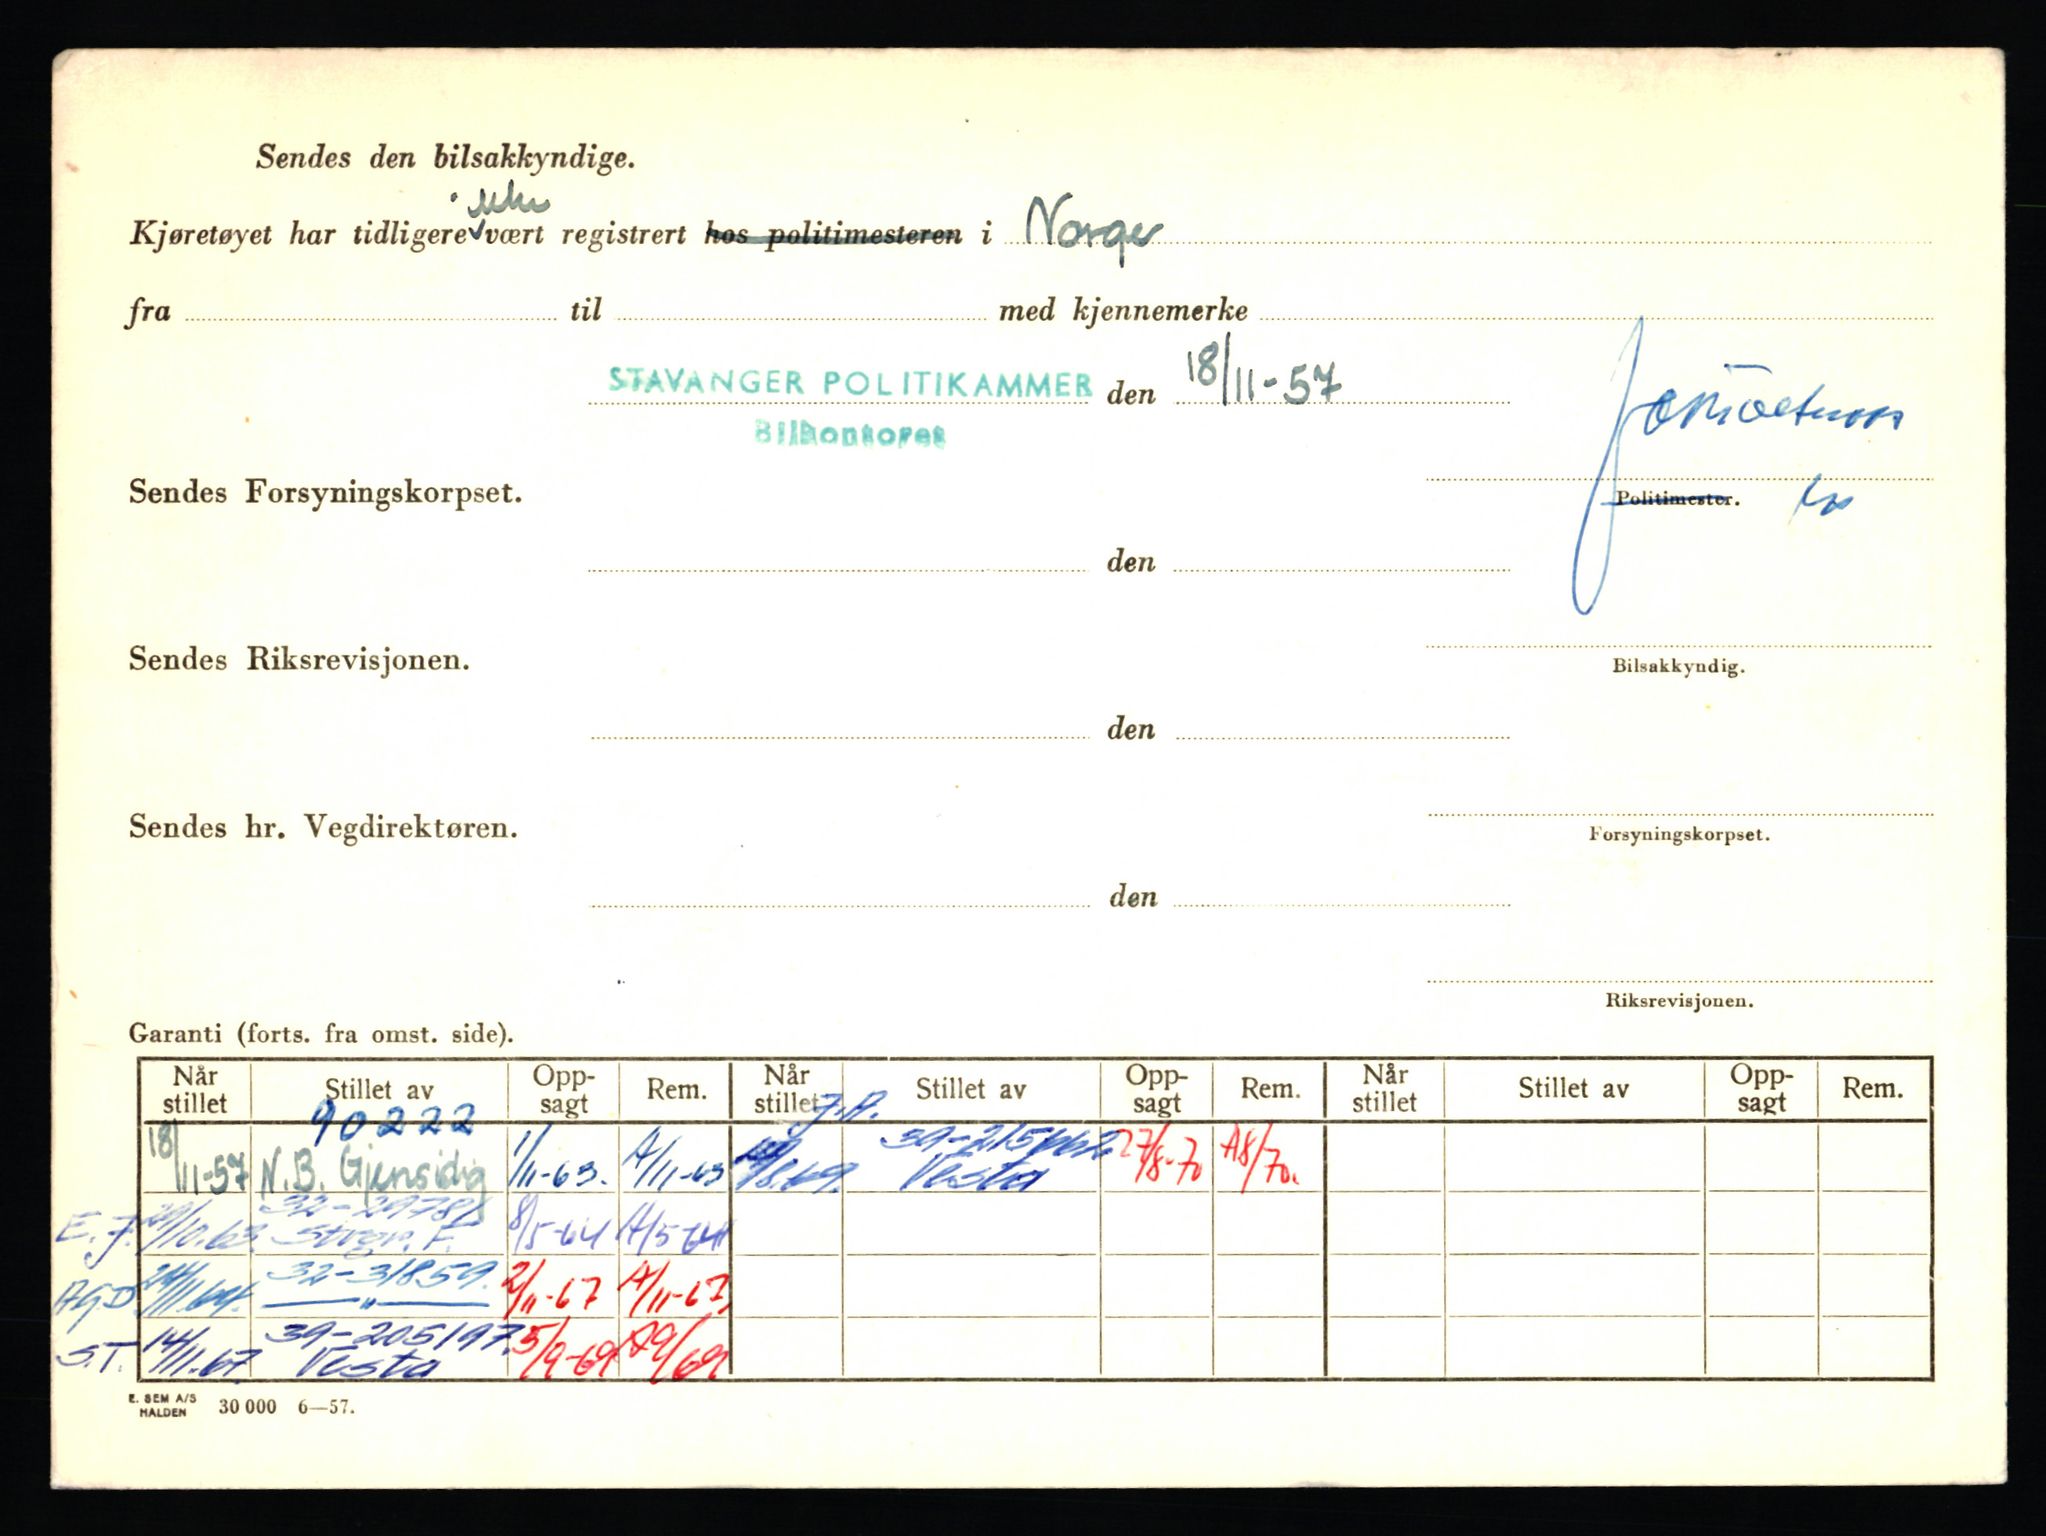 Sendes den bilsakkyndige.
ikke
Kjøretøyet har tidligere vært registrert hos politimesteren i Norge
fra til med kjennemerke
STAVANGER POLITIKAMMER den 18/11-57
Bilkontoret
Sendes Forsyningskorpset.
Politimester.
den
Sendes Riksrevisjonen.
Bilsakkyndig.
den
Sendes hr. Vegdirektøren.
Forsyningskorpset.
den
Riksrevisjonen.
Garanti (forts. fra omst. side).
Når stillet Stillet av Opp-sagt Rem. Når stillet Stillet av Opp-sagt Rem. Når stillet Stillet av Opp-sagt Rem.
90222
18/11-57 N.B. Gjensidig 1/11-63. A/11-63 Vesta 27/8-70 A8/70.
E.J. /10.63 32-29781 Stvgr. F. 8/5-64 A/5-64
AGD 24/11.64. 32-31859. — " — 2/11-67 A/11-67
S.T. 14/11.67 39-205197. Vesta 5/9-69 A9/69
E. SEM A/S HALDEN 30 000 6—57.